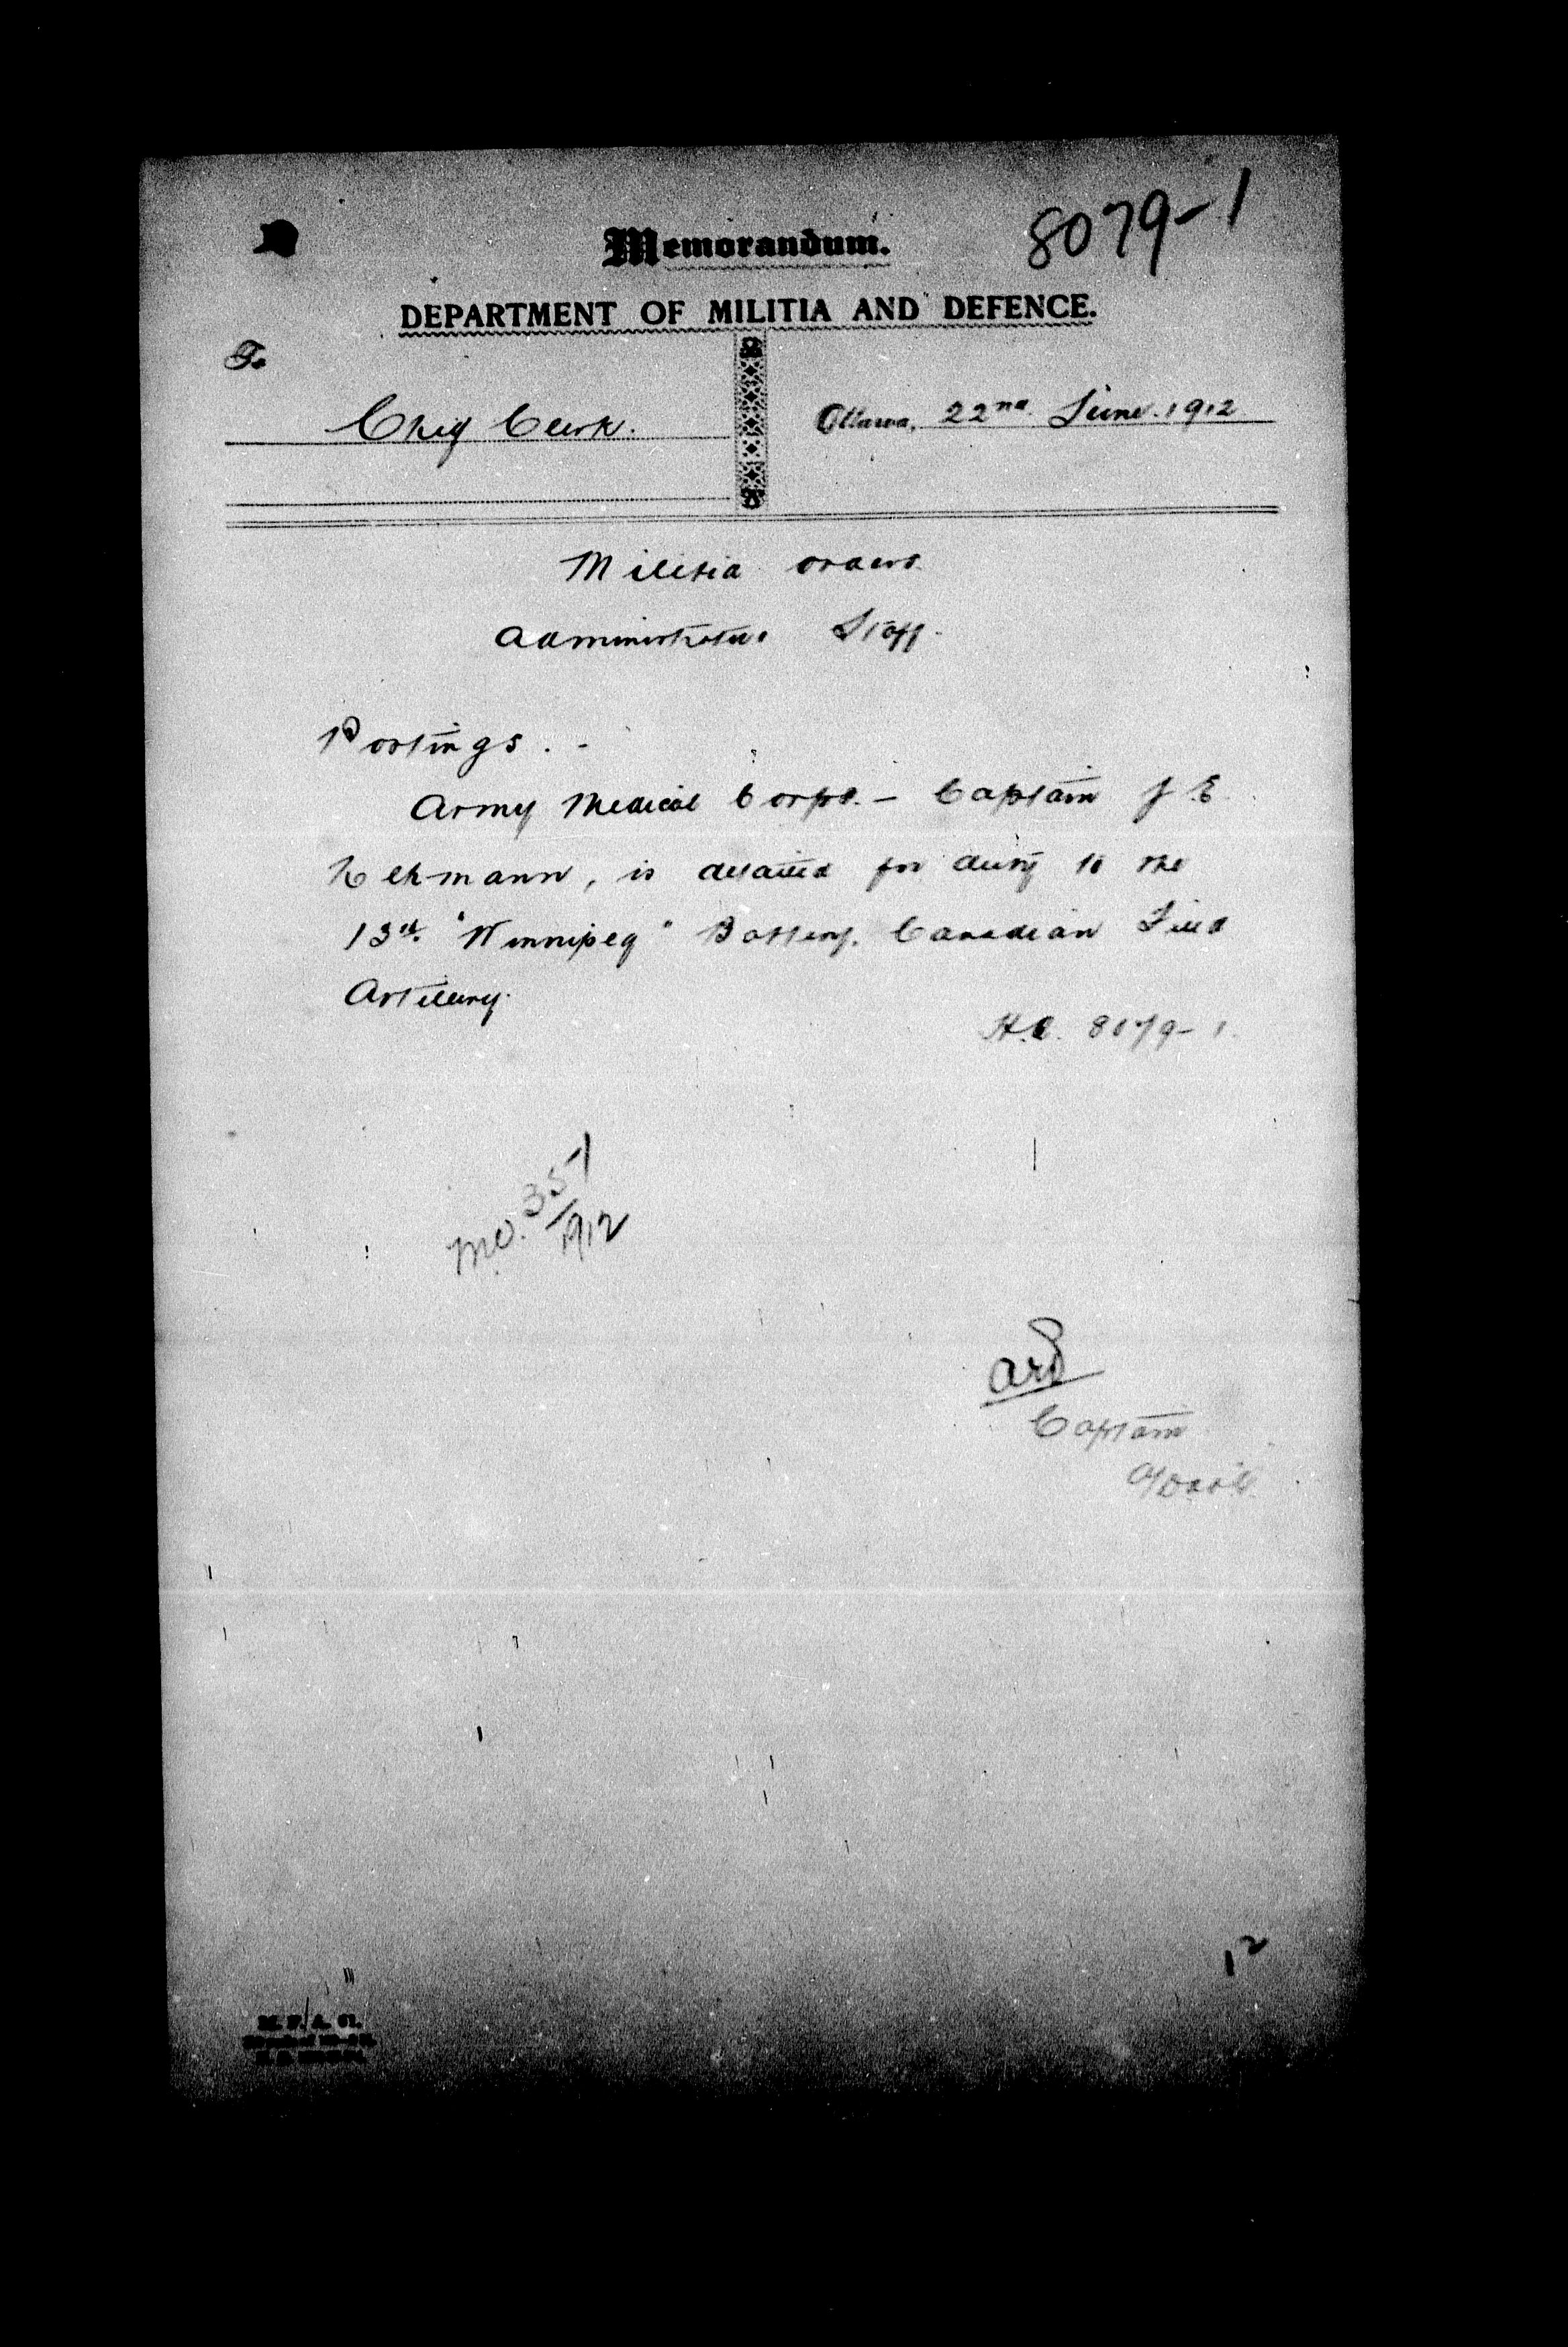 8079-1
Memorandum.
DEPARTMENT OF MILITIA AND DEFENCE.
To
Chief Clerk.
Ottawa, 22nd June 1912
Militia Orders
Administrative Staff.
Postings. -
Army Medical Corps. - Captain J. E.
Lehmann, is detailed for duty to the
13th. "Winnipeg" Battery, Canadian Field
Artillery.
H.Q. 8079-1.
M.O. 351
1912
Captain
12